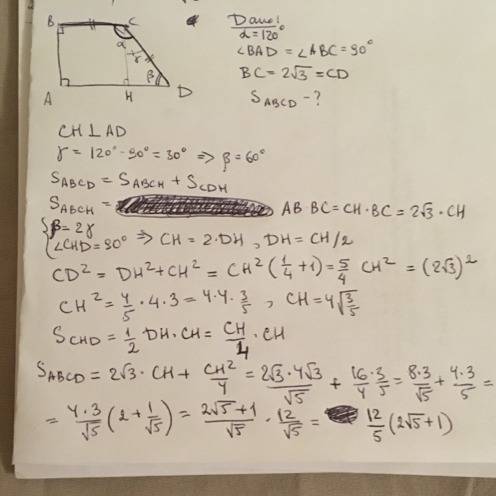 B C Дано:
α α = 120°
γ ∠BAD = ∠ABC = 90°
β BC = 2√3 = CD
A H D S_ABCD - ?
CH ⊥ AD
γ = 120° - 90° = 30° ⇒ β = 60°
S_ABCD = S_ABCH + S_CDH
S_ABCH = AB·BC = CH·BC = 2√3·CH
{β = 2γ
∠CHD = 90° ⇒ CH = 2·DH, DH = CH/2
CD² = DH² + CH² = CH²(1/4 + 1) = 5/4 CH² = (2√3)²
CH² = 4/5 · 4·3 = 4·4·3/5, CH = 4√(3/5)
S_CHD = 1/2 DH·CH = CH/4 · CH
S_ABCD = 2√3 · CH + CH²/4 = 2√3·4√3/√5 + 16/4·3/5 = 8·3/√5 + 4·3/5 =
= 4·3/√5 (2 + 1/√5) = (2√5+1)/√5 · 12/√5 = 12/5 (2√5+1)